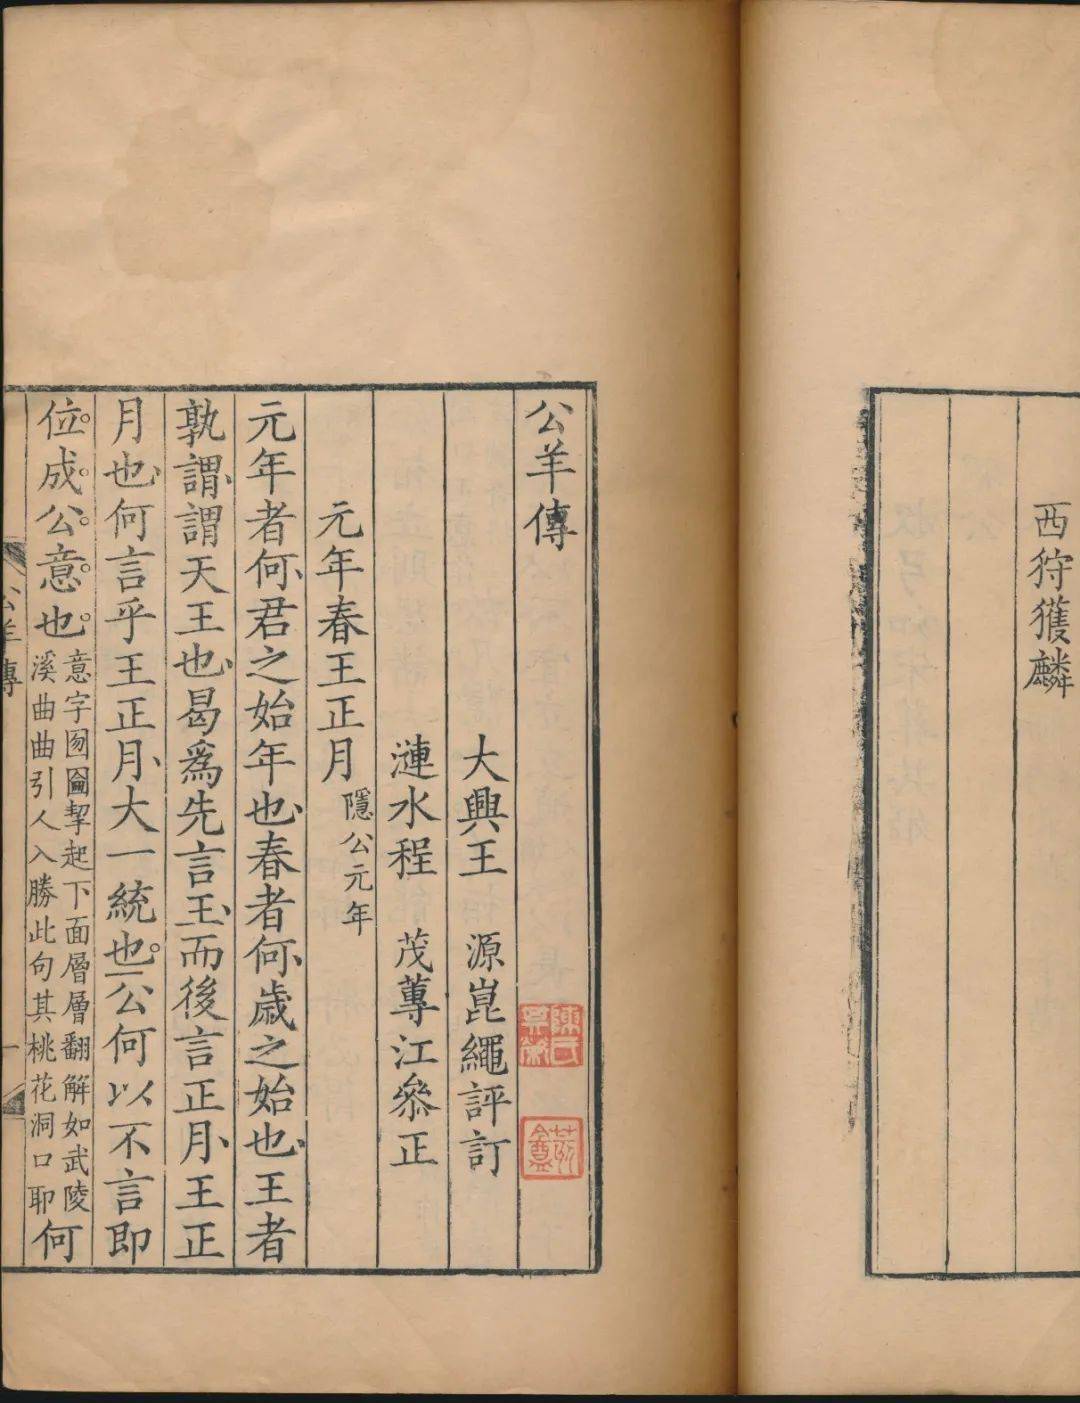 西狩獲麟
公羊傳
大興王　源崑繩評訂
漣水程　茂蓴江叅正
元年春王正月隱公元年
元年者何君之始年也春者何歲之始也王者
孰謂謂天王也曷爲先言王而後言正月王正
月也何言乎王正月大一統也公何以不言即
位成公意也
意字囫圇挈起下面層層翻解如武陵
溪曲曲引人入勝此句其桃花洞口耶
何
公羊傳
一